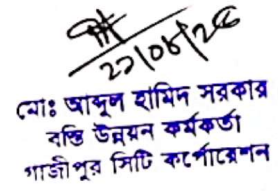 ২১/০৮/২৫
মোঃ আব্দুল হামিদ সরকার
বস্তি উন্নয়ন কর্মকর্তা
গাজীপুর সিটি কর্পোরেশন